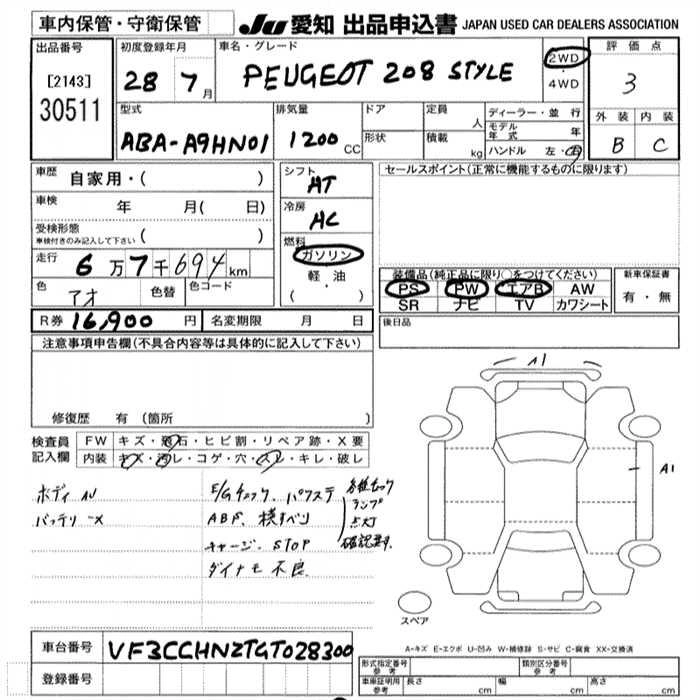 車内保管・守衛保管 JU 愛知 出品申込書 JAPAN USED CAR DEALERS ASSOCIATION
出品番号
[2143]
30511
初度登録年月
28 7月
車名・グレード
PEUGEOT 208 STYLE
2WD
4WD
評価点
3
外装 内装
B C
型式
ABA-A9HN01
排気量
1200 CC
ドア
形状
定員 人
積載 kg
ディーラー・並行
モデル年式 年
ハンドル 左・右
車歴 自家用・( )
車検 年 月( 日)
受検形態
車検付きのみ記入して下さい ( )
走行 6万7千694km
色 アオ 色替 色コード
シフト AT
冷房 AC
燃料
ガソリン
軽油
( ・ )
セールスポイント(正常に機能するものに限ります)
装備品(純正品に限り○をつけてください)
PS PW エアB AW
SR ナビ TV カワシート
新車保証書
有・無
R券 16,900円 名変期限 月 日
後日品
注意事項申告欄(不具合内容等は具体的に記入して下さい)
修復歴 有(箇所 )
検査員記入欄
FW キズ・飛石・ヒビ割・リペア跡・X要
内装 キズ・汚レ・コゲ・穴・スレ・キレ・破レ
ボディ
バッテリーX
E/Gチェック、パワステ
ABS、横すべり
チャージ、STOP
ダイナモ不良
各種チェック
ランプ
点灯
確認済
A1
A1
スペア
A-キズ E-エクボ U-凹み W-補修跡 S-サビ C-腐食 XX-交換済
車台番号 VF3CCHNZTGT028300
登録番号
形式指定番号 参考
類別区分番号 参考
車庫証明用 参考 長さ cm 幅 cm 高さ cm